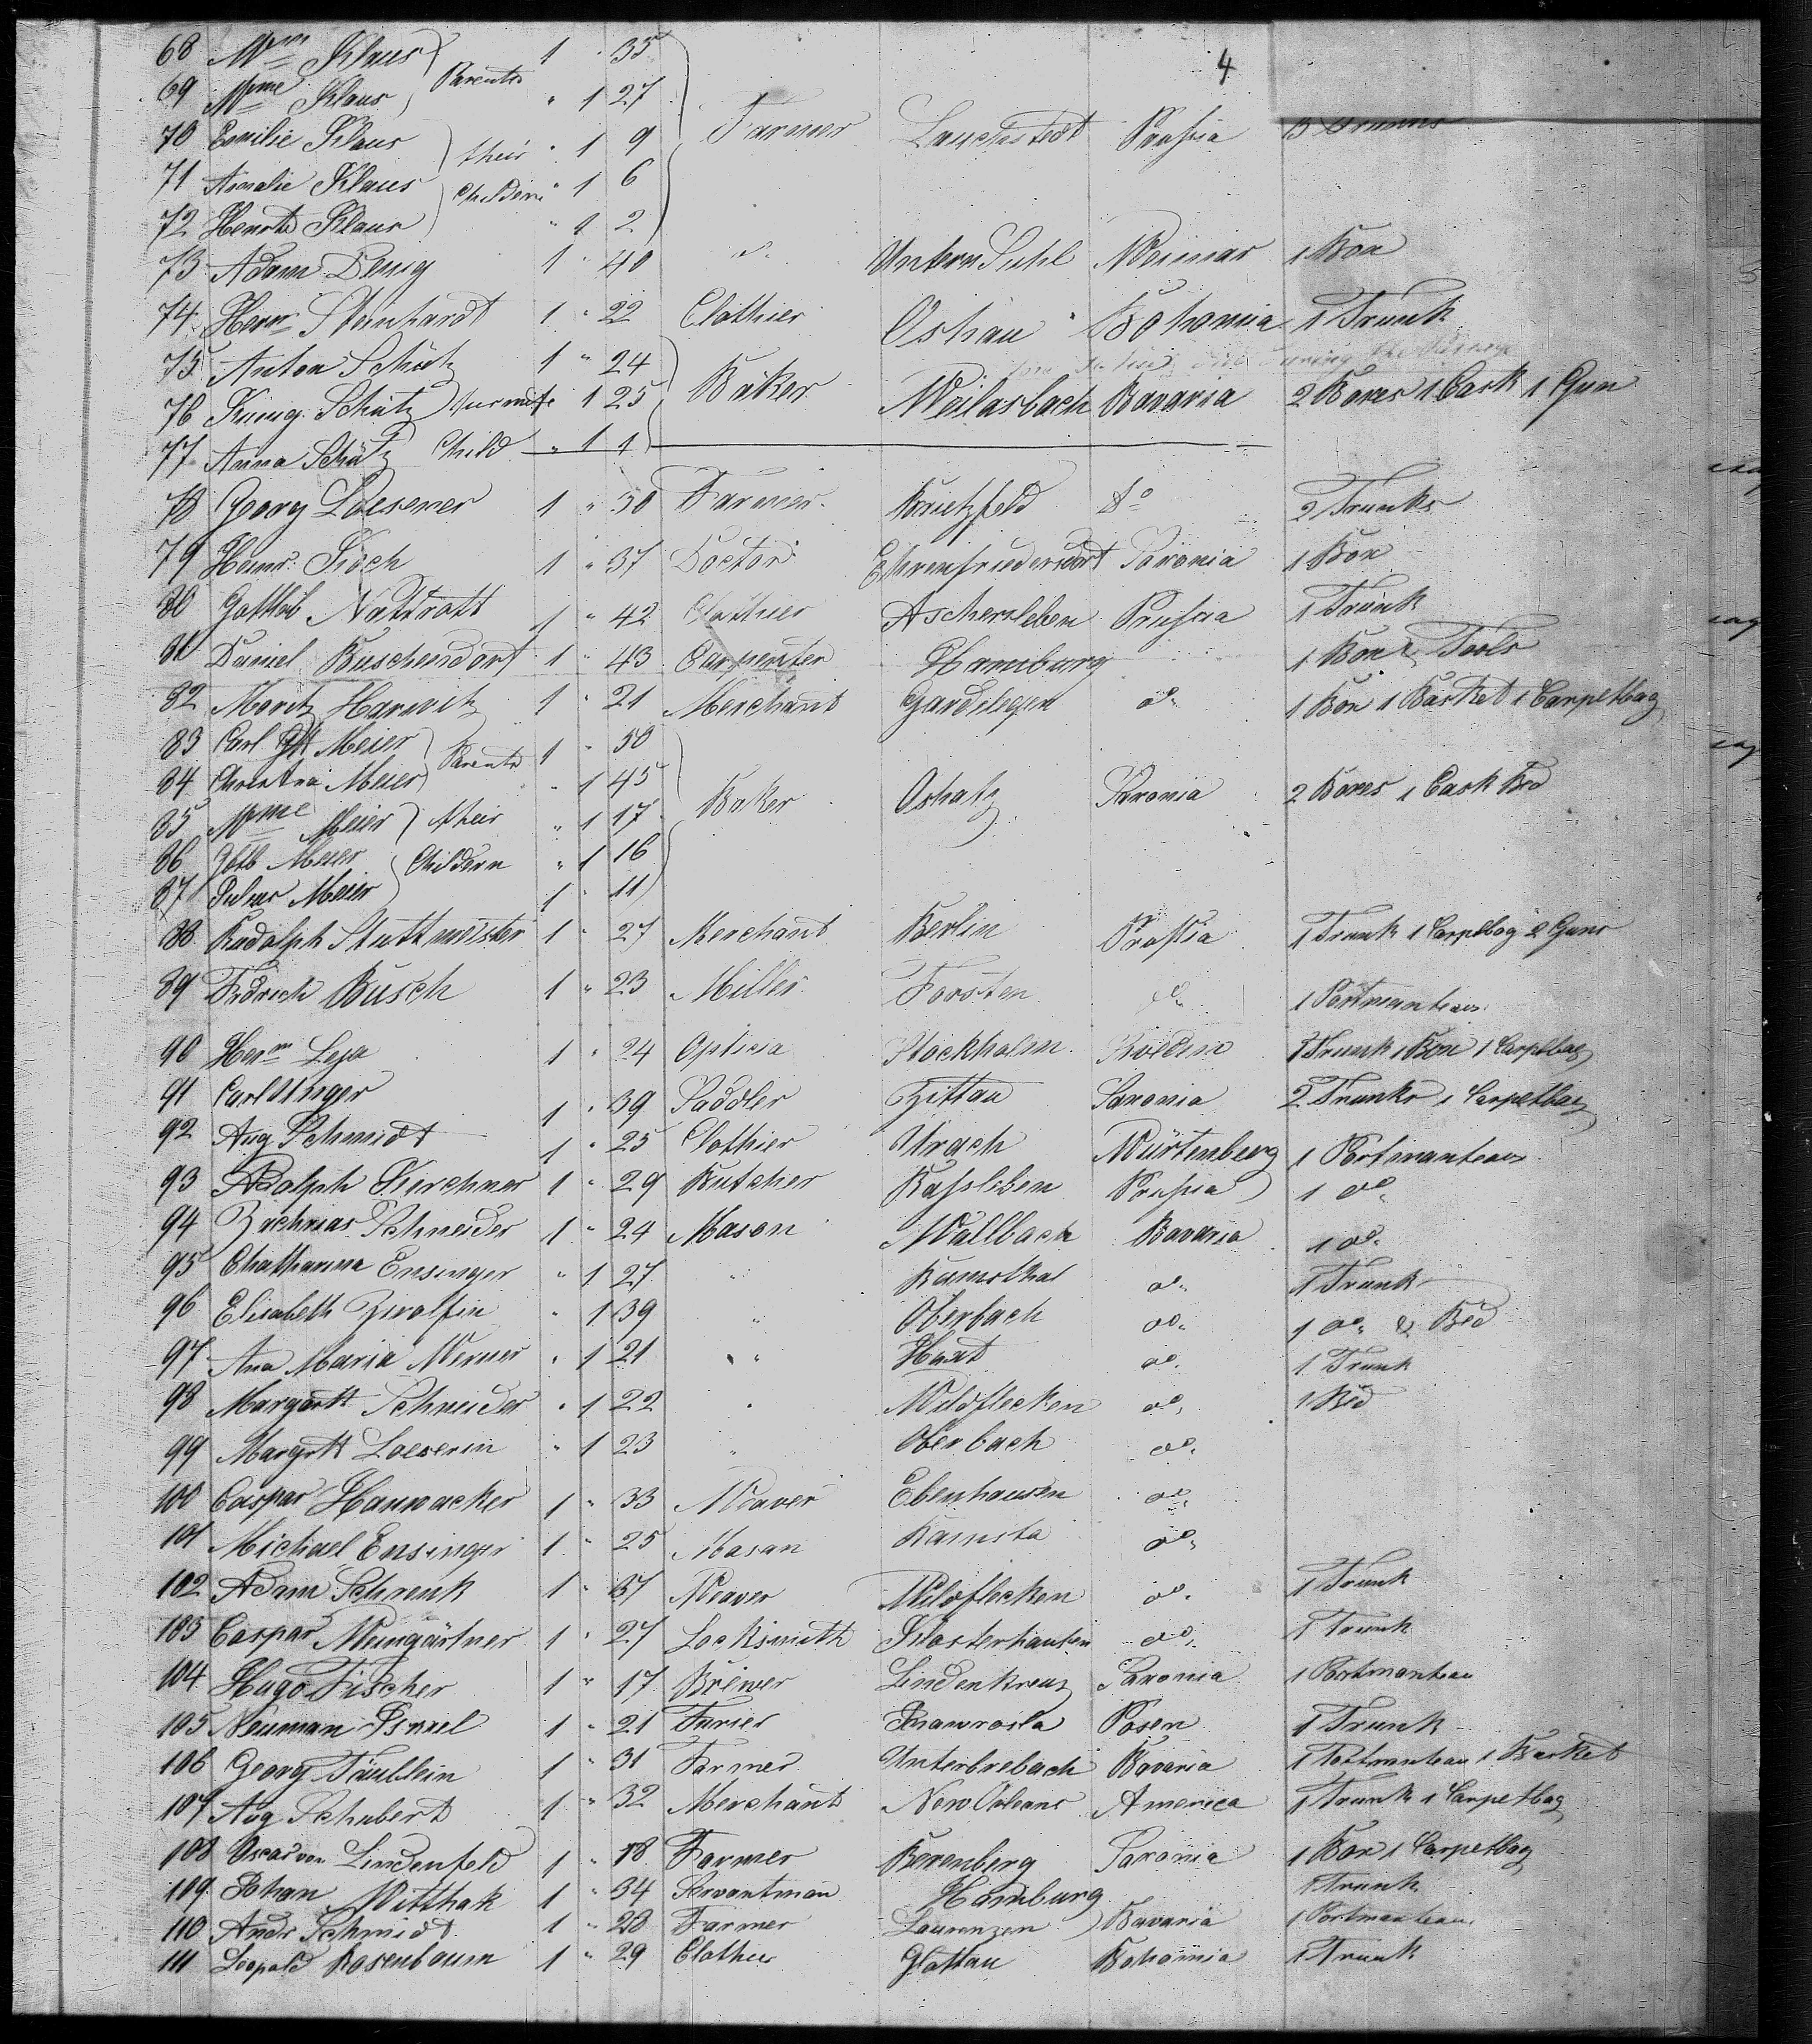 4
68 Wm Klaus Parents 1 " 35
69 Wme Klaus " 1 27
70 Emilie Klaus their " 1 9 Farmer Lauchstedt Prussia
71 Amalie Klaus Childern " 1 6
72 Henrte Klaus " 1 2
73 Adam Deng 1 " 40 " Untern Suhl Weimar 1 Box
74 Herm Steinhardt 1 " 22 Clothier Oshau Bohomia 1 Trunk
75 Anton Schütz 1 " 24
76 Kunig. Schütz his wife 1 25 Baker Weilasbach Bavaria 2 Boxes 1 Cask 1 Gun
77 Anna Schütz Child " 1 1
78 Georg Loesener 1 " 30 Farmer Do 2 Trunks
79 Heinr. Koch 1 " 37 Doctor Ehrenfriedersdorf Saxonia 1 Box
80 Gottlieb Nattrott 1 " 42 Clothier Aschersleben Prussia 1 Trunk
81 Daniel Buschendorf 1 " 43 Carpenter Hamburg 1 Box & Tools
82 Moritz Harwitz 1 " 21 Merchant Gardelegen do 1 Box 1 Basket 1 Carpetbag
83 Carl Meier Parents 1 " 50
84 Christna Meier " 1 45
85 Wme Meier their " 1 17 Baker Oshatz Saxonia 2 Boxes 1 Cask Bed
86 Gottb Meier Childern " 1 16
87 Julius Meier 1 " 11
88 Rudolph Stuttmeister 1 " 27 Merchant Berlin Prussia 1 Trunk 1 Carpetbag 2 Guns
89 Fridrich Busch 1 " 23 Miller Forsten do 1 Portmanteau
90 Herm Leja 1 " 24 Opticia Stockholm Sweden Trunk 1 Box 1 Carpetbag
91 Carl Unger 1 " 39 Saddler Zittau Saxonia 2 Trunks 1 Carpetbag
92 Aug Schmidt 1 " 25 Clothier Urach Würtemberg 1 Portmanteau
93 Adolph Kirchner 1 " 29 Butcher Bassleben Prussia 1 do
94 Zachrias Schneider 1 " 24 Mason Wallbach Bavaria 1 do
95 Chatharina Ensinger " 1 27 " Ramsthal do 1 Trunk
96 Elisabeth Zirolfin " 1 39 " Oberbach do 1 do & Bed
97 Ana Maria Werner " 1 21 " Haut do 1 Trunk
98 Margartt Schneider " 1 22 " Wildflecken do 1 Bed
99 Margrtt Loeserin " 1 23 " Oberbach do
100 Caspar Hanwacker 1 " 33 Weaver Ebenhausen do
101 Michael Ensinger 1 " 25 Masan Ramsta do
102 Adam Schrenk 1 " 37 Weaver Wildflecken do 1 Trunk
103 Caspar Weingärtner 1 " 27 Locksmith Klosterhausen do 1 Trunk
104 Hugo Fischer 1 " 17 Brewer Lindenkreuz Saxonia 1 Portmanteau
105 Neuman Israel 1 " 21 Furier Posen 1 Trunk
106 Georg Täublein 1 " 31 Farmer Unterbrebach Bavaria 1 Portmanteau 1 Basket
107 Aug Schubert 1 " 32 Merchant New Orleans America 1 Trunk 1 Carpetbag
108 Oscar von Lindenfeld 1 " 18 Farmer Berenberg Saxonia 1 Box 1 Carpetbag
109 Johan Witthak 1 " 34 Servantman Hamburg 1 Trunk
110 Andr Schmidt 1 " 28 Farmer Laurenzen Bavaria 1 Portmanteau
111 Leopold Rosenbaum 1 " 29 Clothier Glattau Bohomia 1 Trunk